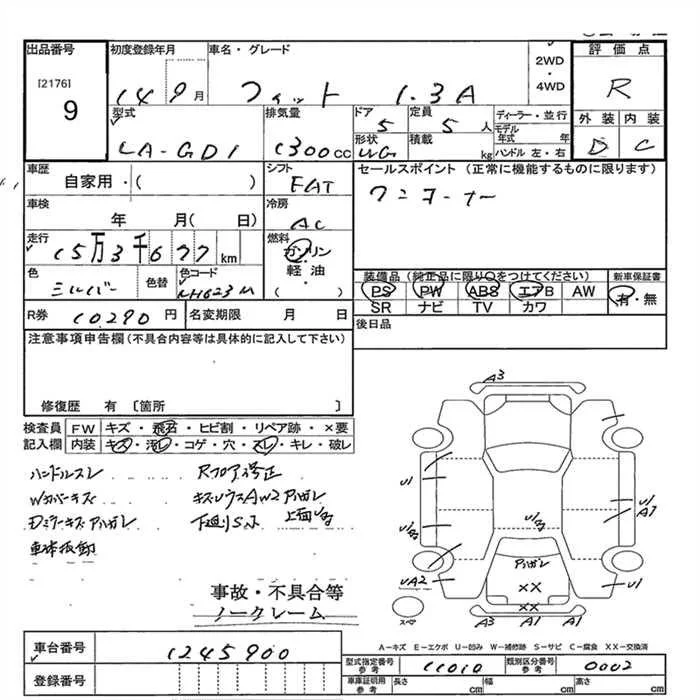 出品番号
[2176]
9
初度登録年月
14 9月
車名・グレード
フィット 1.3A
2WD
・
4WD
評価点
R
外装 内装
D C
型式
LA-GD1
排気量
1300cc
ドア
5
定員
5人
形状
積載
kg
ディーラー・並行
モデル年式 年
ハンドル 左・右
車歴
自家用・( )
シフト
FAT
セールスポイント (正常に機能するものに限ります)
ワンオーナー
車検
年 月( 日)
冷房
AC
走行
15万3千677km
燃料
ガソリン
軽油・
( )
色
シルバー
色替
色コード
NH623M
装備品 (純正品に限り○をつけてください)
PS PW ABS エアB AW
SR ナビ TV カワ
新車保証書
有・無
R券 10290円
名変期限 月 日
後日品
注意事項申告欄(不具合内容等は具体的に記入して下さい)
修復歴 有〔箇所 〕
検査員記入欄
FW キズ・飛石・ヒビ割・リペア跡・×要
内装 キズ・汚レ・コゲ・穴・スレ・キレ・破レ
ハンドルスレ
Wカバーキズ
Dミラーキズハガレ
Rフロア修正
下廻りSサビ
事故・不具合等
ノークレーム
A3
U1
UA2
A3
A1
A1
U1
ハガレ
XX
XX
スペア
A-キズ E-エクボ U-凹み W-補修跡 S-サビ C-腐食 XX-交換済
車台番号
1245900
登録番号
型式指定番号
参考
11010
類別区分番号
参考
0002
車庫証明用
参考
長さ cm
幅 cm
高さ cm